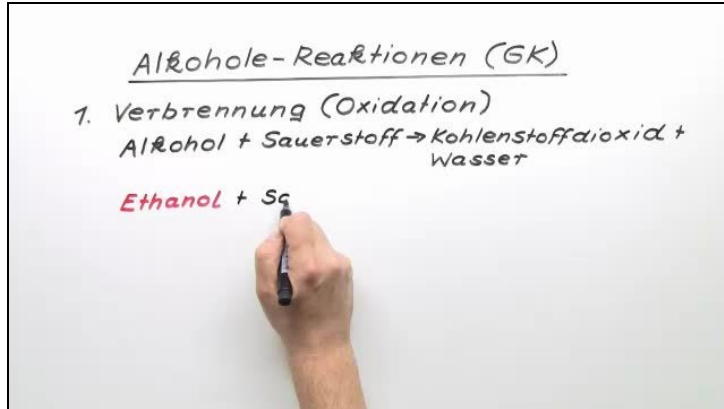 Alkohole-Reaktionen (GK)
1. Verbrennung (Oxidation)
Alkohol + Sauerstoff → Kohlenstoffdioxid +
Wasser
Ethanol + Sa